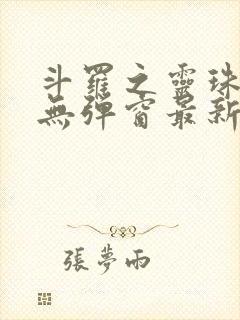 斗羅之靈珠
無彈窗最新
張夢雨